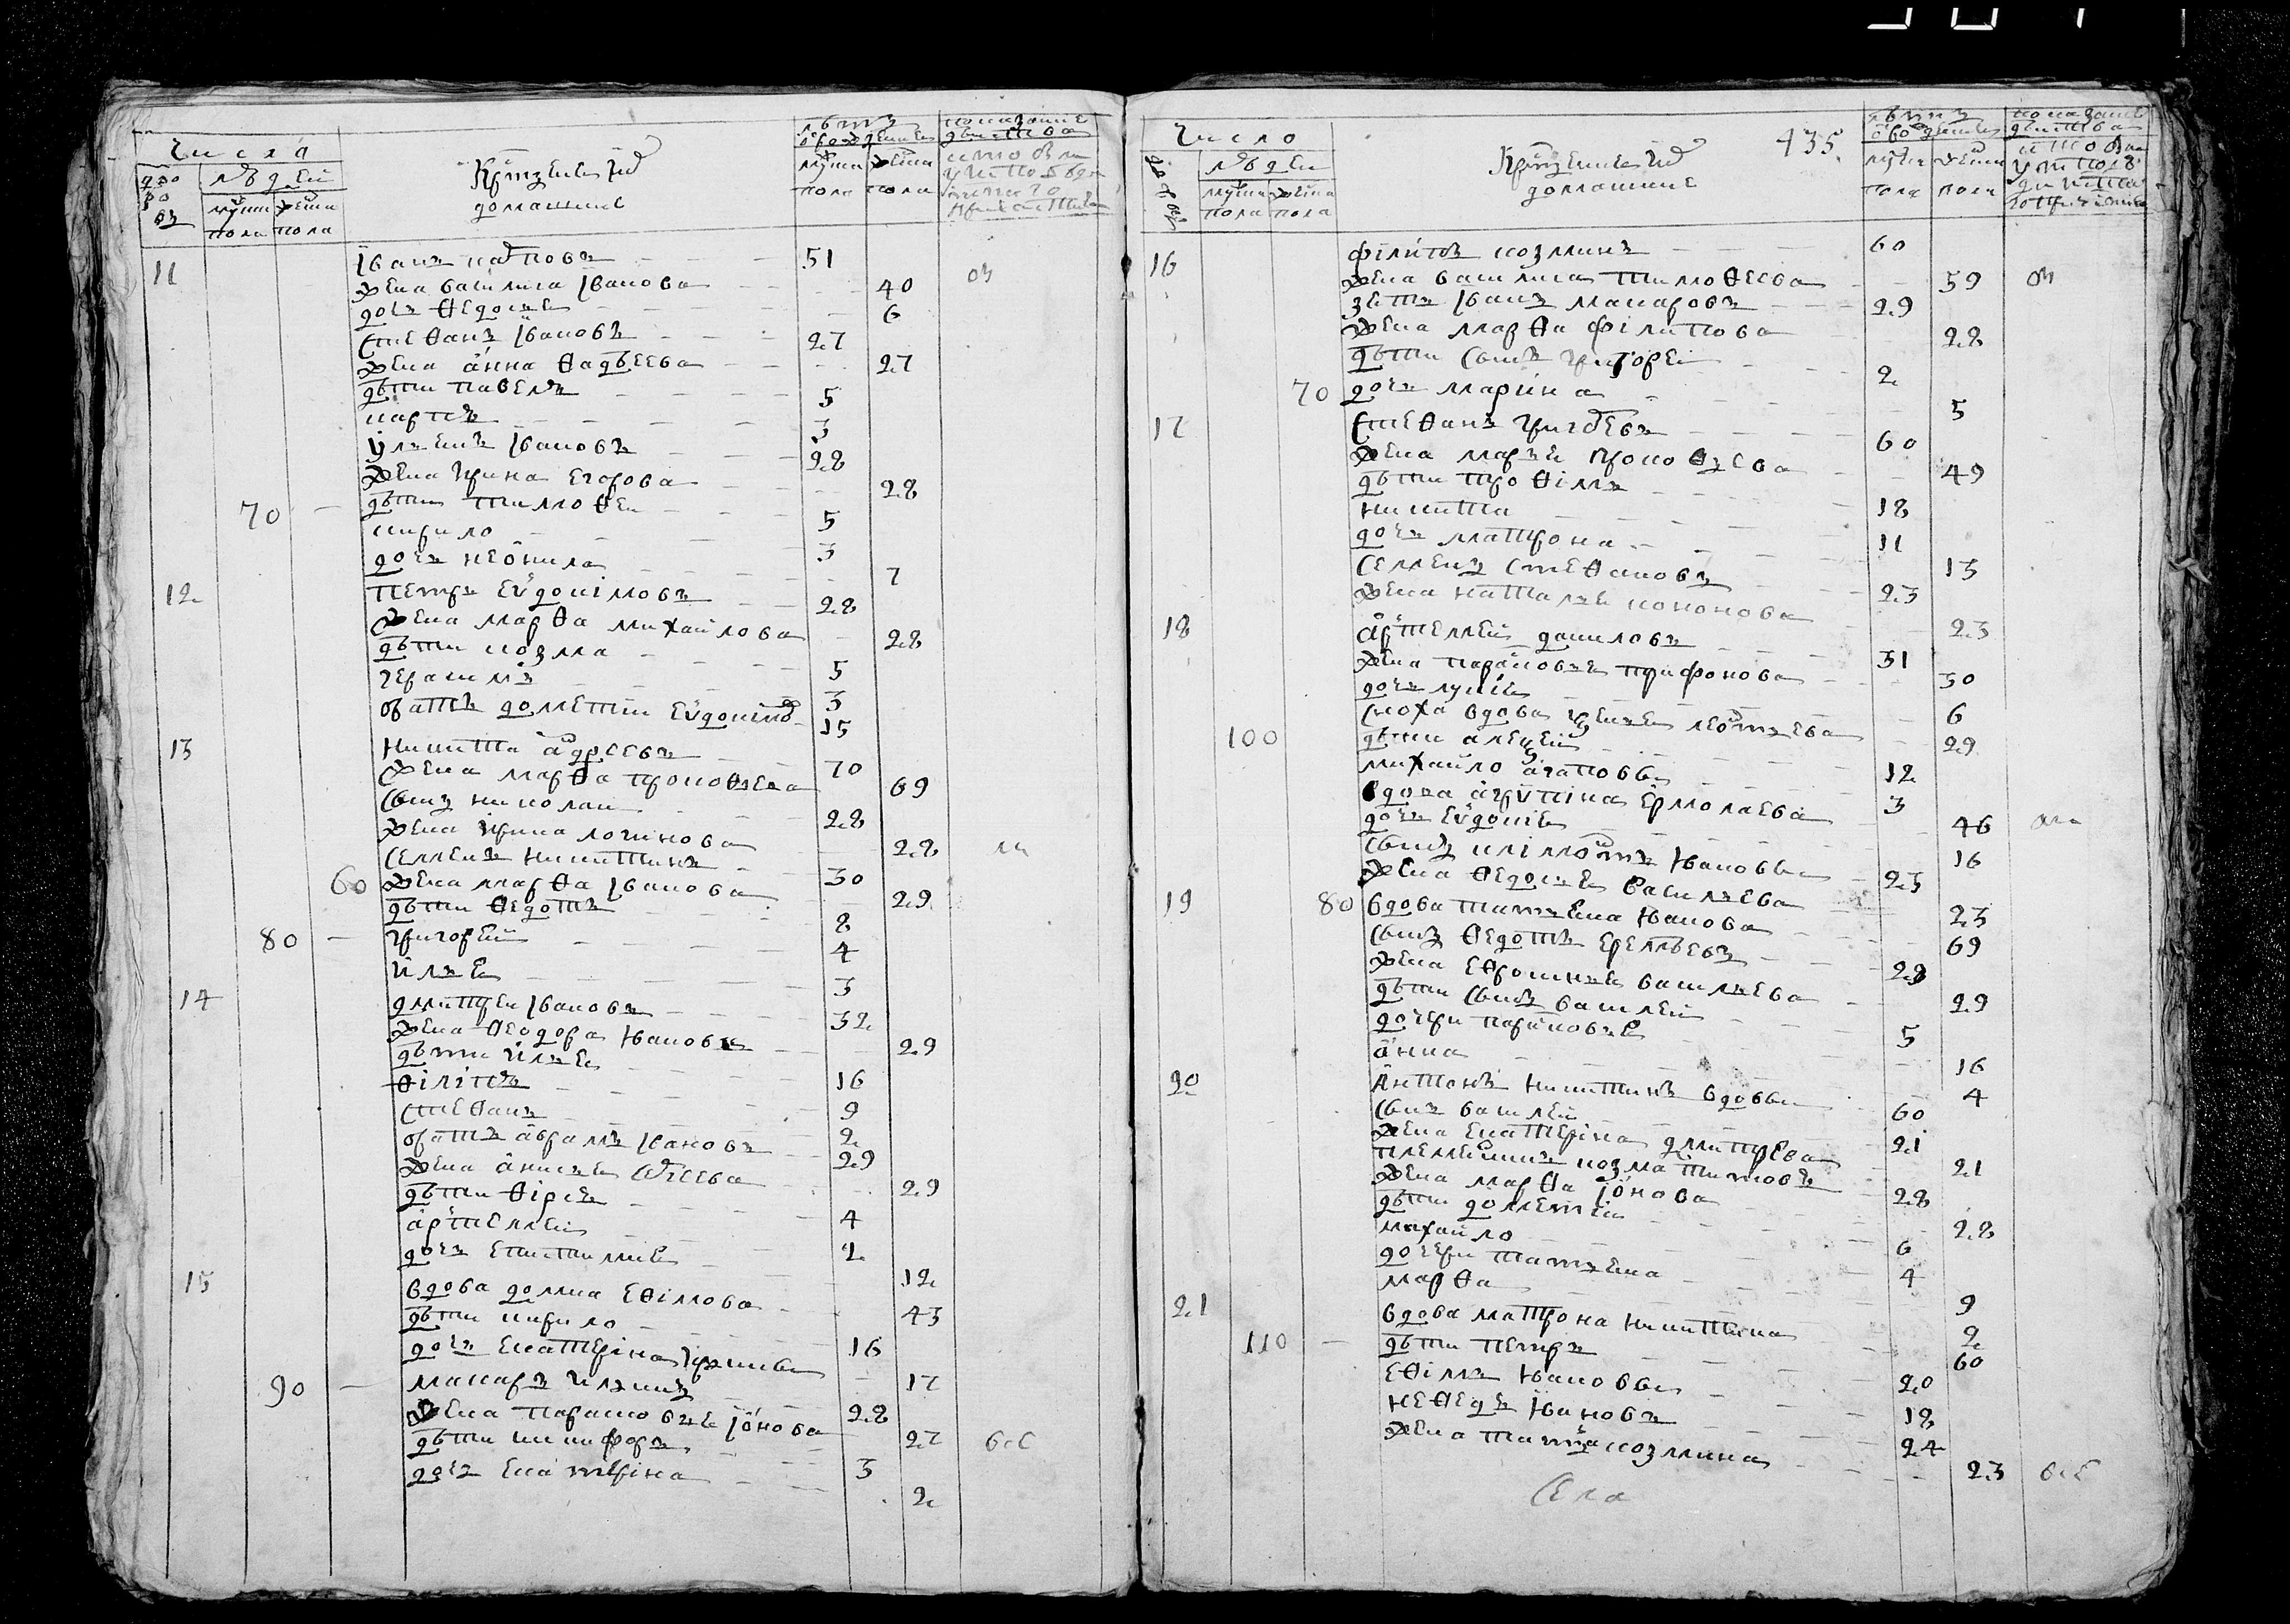 Число
людей
мужска пола
женска пола
Крестьяне и их домашние
лета от рождения
мужска пола
женска пола
11 Иванъ 51
жена василиса Иванова 40
дочь Ѳедосья 6
Стеѳанъ Ивановъ 27
жена анна Ѳадѣева 27
дѣти павелъ 5
карпъ 3
Ульянъ Ивановъ 28
жена Ирина Егорова 28
70 дѣти тимоѳеи 5
кирило 3
дочь неонила 7
12 петръ Евдокимовъ 28
жена марѳа михаилова 28
дѣти козма 5
герасимъ 3
братъ дометии Евдокимов 15
13 никита андреевъ 70
жена марѳа прокоѳьева 69
сынъ николаи 28
жена Ирина логинова 28
Семенъ никитинъ 30
60 жена марѳа Иванова 29
дѣти Ѳедотъ 8
80 григореи 4
Илья 3
14 дмитреи Ивановъ 32
жена Ѳеодора Иванова 29
дѣти Илья 16
Ѳилипъ 9
Стеѳанъ 2
братъ аврамъ Ивановъ 29
жена анисья 29
дѣти Ѳирсъ 4
артемеи 2
дочь Епистимия 12
15 вдова домна Еѳимова 43
дѣти кирило 16
дочь Екатерина 17
90 макаръ Ильинъ 28
жена парасковья Ионова 27
дѣти никифоръ 3
дочь Екатерина 2
Число
людей
мужска пола
женска пола
Крестьяне и их домашние
435
лета от рождения
мужска пола
женска пола
16 филипъ козминъ 60
жена василиса тимоѳеева 59
зять Иванъ макаровъ 29
жена марѳа филипова 28
дѣти сынъ григореи 2
70 дочь марина 5
17 Стеѳанъ григоревъ 60
жена марья прокоѳьева 49
дѣти троѳимъ 18
никита 11
дочь матрона 13
Семенъ Стеѳановъ 23
жена наталья кононова 23
18 артемеи даниловъ 31
жена парасковья трифонова 30
дочь лукия 6
сноха вдова леонтьева 29
100 дѣти алексеи 12
михаило агаповы 3
вдова агрипина Ермолаева 46
дочь Евдокия 16
сынъ климонтъ Ивановы 23
жена Ѳедосья васильева 23
19 80 вдова татьяна Иванова 69
сынъ Ѳедотъ Еремѣевъ 28
жена Еѳросинья васильева 29
дѣти сынъ василеи 5
дочери парасковья 16
анна 4
20 антонъ никитинъ вдовы 60
сынъ василеи 21
жена Екатерина дмитрева 21
племянникъ козма титовъ 28
жена марѳа Ионова 28
дѣти дометии 6
михаило 4
дочери татьяна 9
марѳа 2
21 вдова матрона никитина 60
110 дѣти петръ 20
Еѳимъ Ивановы 18
неѳедъ Ивановъ 24
жена татьяна козмина 23
Села